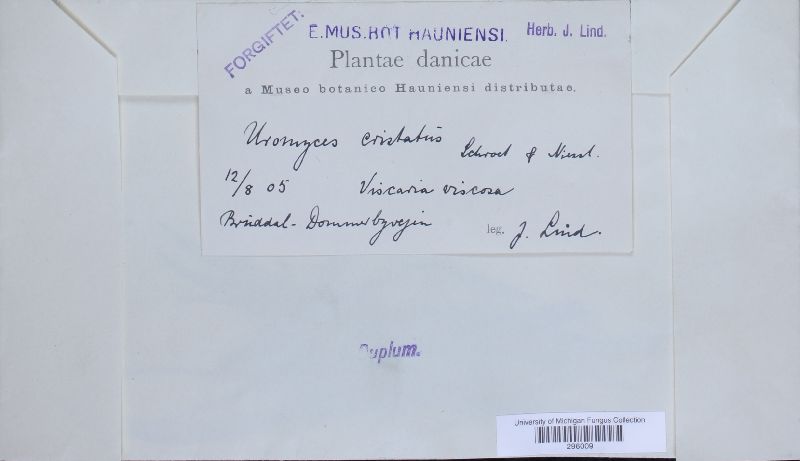 FORGIFTET.
E. MUS. BOT HAUNIENSI.
Herb. J. Lind.
Plantae danicae
a Museo botanico Hauniensi distributae.
Uromyces cristatus Schroet & Niessl.
12/8 05 Viscaria viscosa
Bruddal - Dommerbyvejen leg. J. Lind.
Duplum.
University of Michigan Fungus Collection
296009